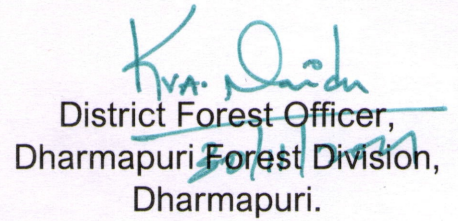 KVA. Naidu
District Forest Officer,
Dharmapuri Forest Division,
Dharmapuri.